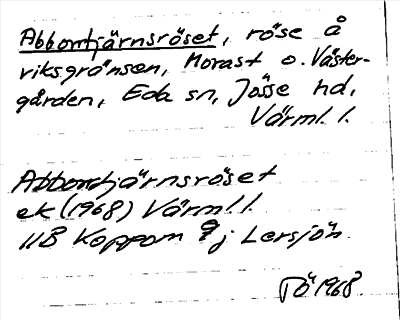 Abborrtjärnsröset, röse å
riksgränsen, Morast o. Väster-
gården, Eda sn, Jösse hd,
Värml. l.
Abborrtjärnsröset
ek (1968) Värml l.
11B Koppom 9 j Lersjön
Tö 1968